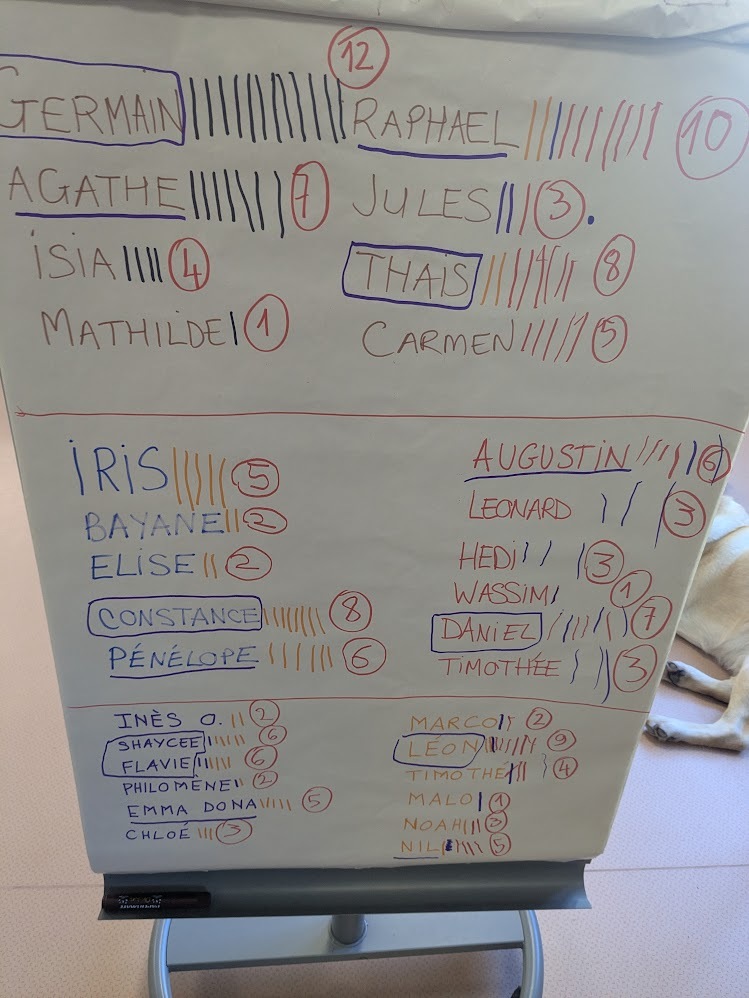 GERMAIN 12
AGATHE 7
ISIA 4
MATHILDE 1
RAPHAEL 10
JULES 3.
THAIS 8
CARMEN 5
IRIS 5
BAYANE 2
ELISE 2
CONSTANCE 8
PÉNÉLOPE 6
AUGUSTIN 6
LEONARD 3
HEDI 3
WASSIM 1
DANIEL 7
TIMOTHÉE 3
INÈS O. 2
SHAYCEE 6
FLAVIE 6
PHILOMÈNE 2
EMMA DONA 5
CHLOÉ 3
MARCO 2
LÉON 9
TIMOTHÉ 4
MALO 1
NOAH 3
NIL 5